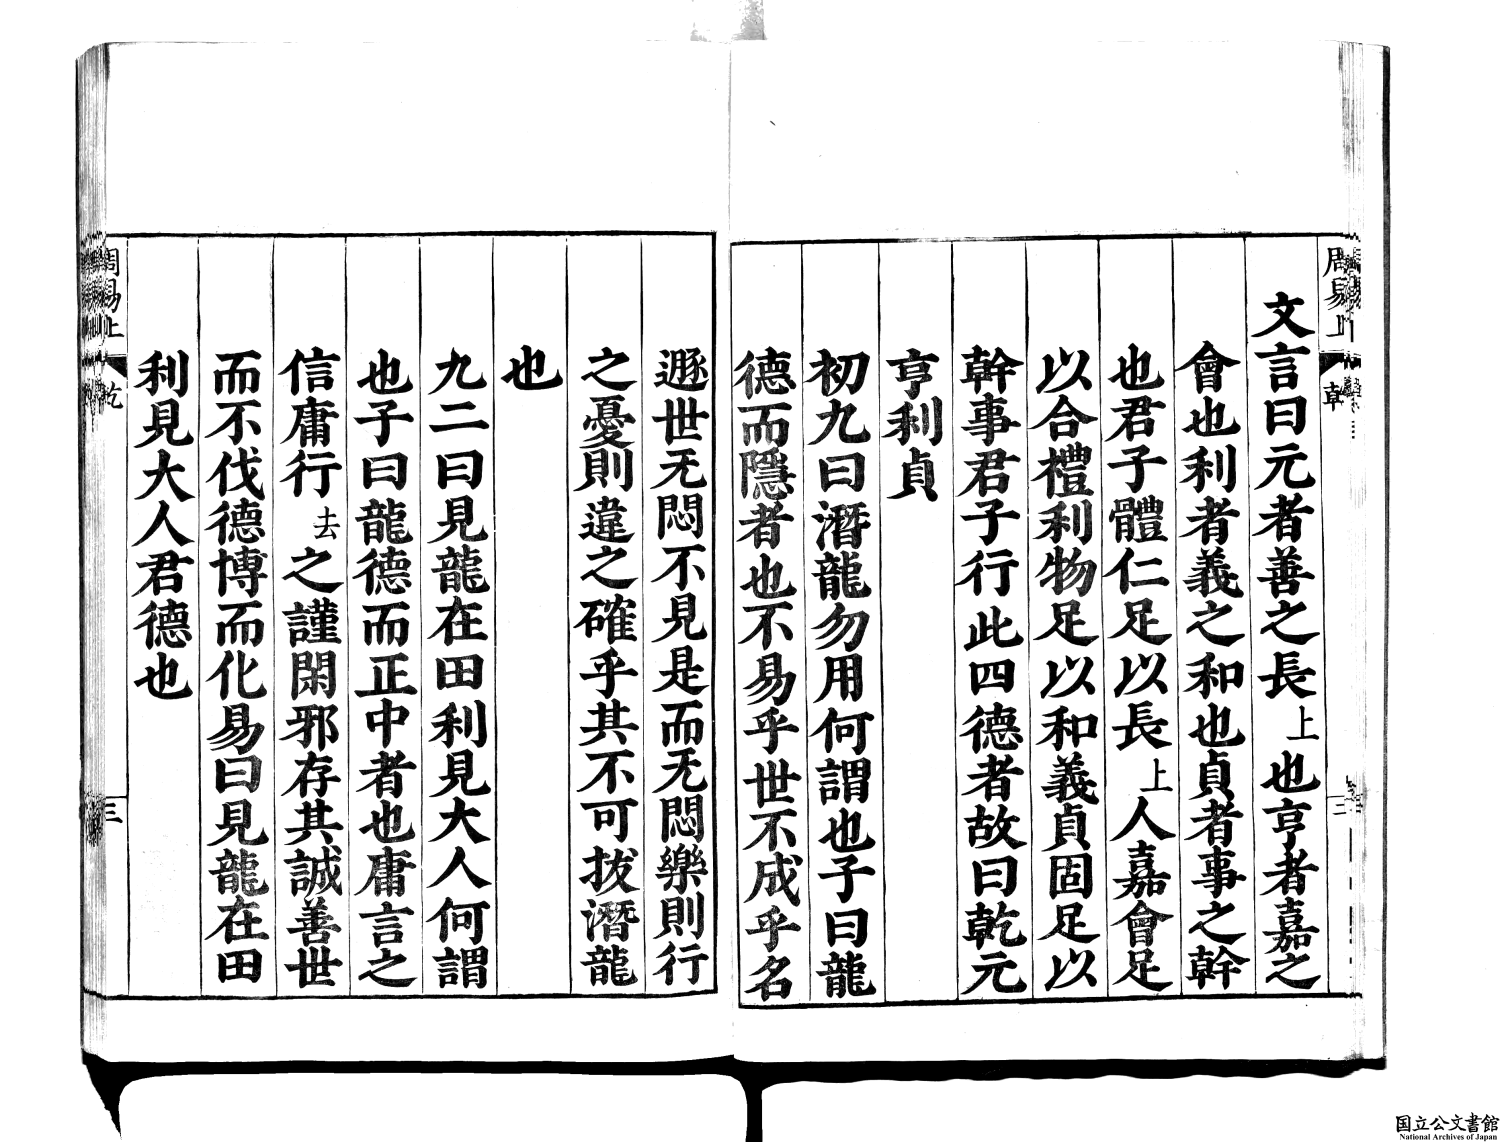 周易上
乾
二
文言曰元者善之長上也亨者嘉之
會也利者義之和也貞者事之幹
也君子體仁足以長上人嘉會足
以合禮利物足以和義貞固足以
幹事君子行此四德者故曰乾元
亨利貞
初九曰潛龍勿用何謂也子曰龍
德而隱者也不易乎世不成乎名
遯世无悶不見是而无悶樂則行
之憂則違之確乎其不可拔潛龍
也
九二曰見龍在田利見大人何謂
也子曰龍德而正中者也庸言之
信庸行去之謹閑邪存其誠善世
而不伐德博而化易曰見龍在田
利見大人君德也
周易上
乾
三
国立公文書館
National Archives of Japan